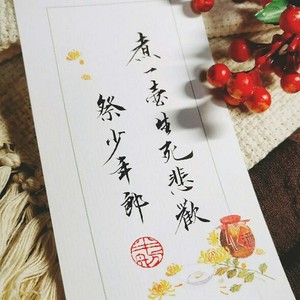 煮一壶生死悲歡
祭少年郎